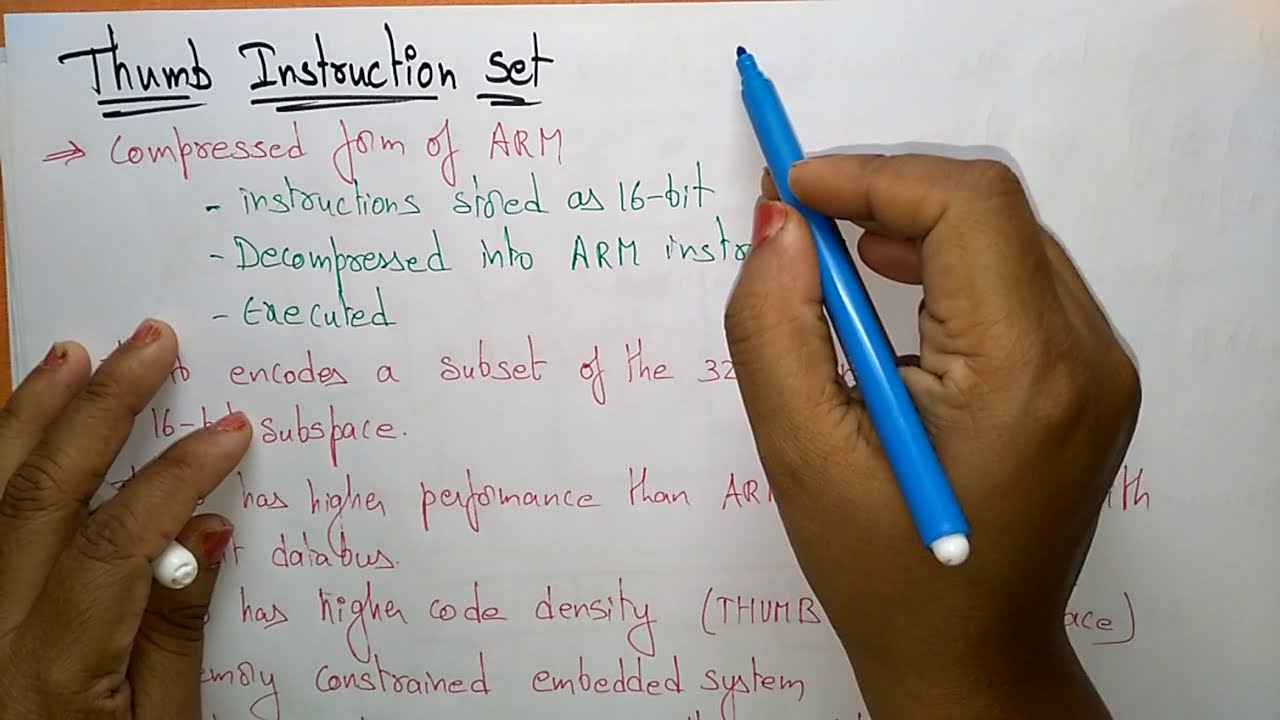 Thumb Instruction set
⇒ Compressed form of ARM
- instructions stored as 16-bit
- Decompressed into ARM instr
- Executed
encodes a subset of the 32
16-bit subspace.
has higher performance than ARM
databus.
has higher code density (THUMB
constrained embedded system